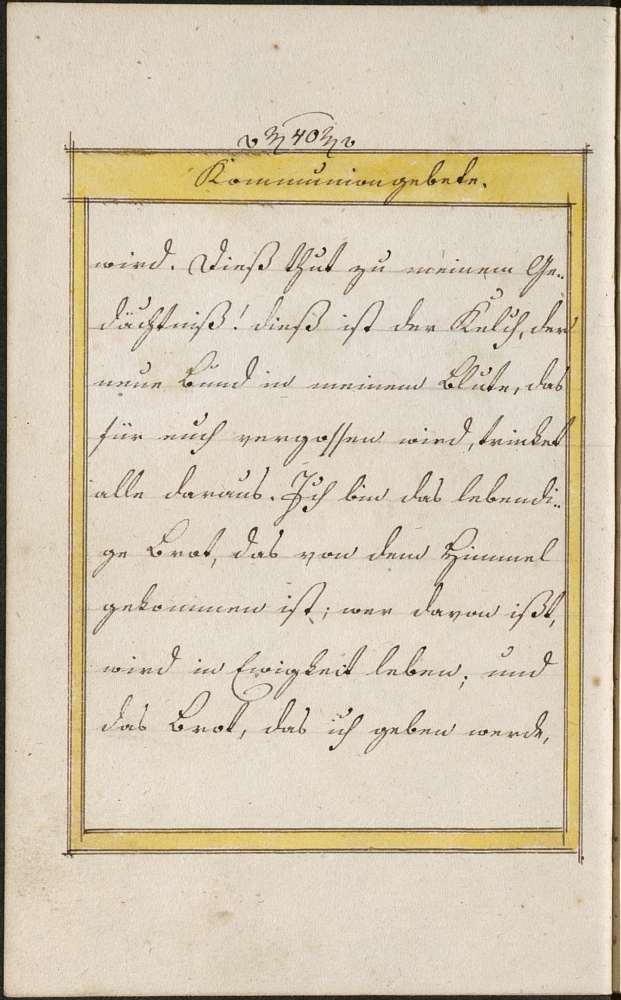 40
Kommuniongebete.
wird. Dieß thut zu meinem Ge-
dächtniß! dieß ist der Kelch, der
neue Bund in meinem Blute, das
für euch vergossen wird, trinket
alle daraus. Ich bin das lebendi-
ge Brot, das von dem Himmel
gekommen ist; wer davon ißt,
wird in Ewigkeit leben; und
das Brot, das ich geben werde,